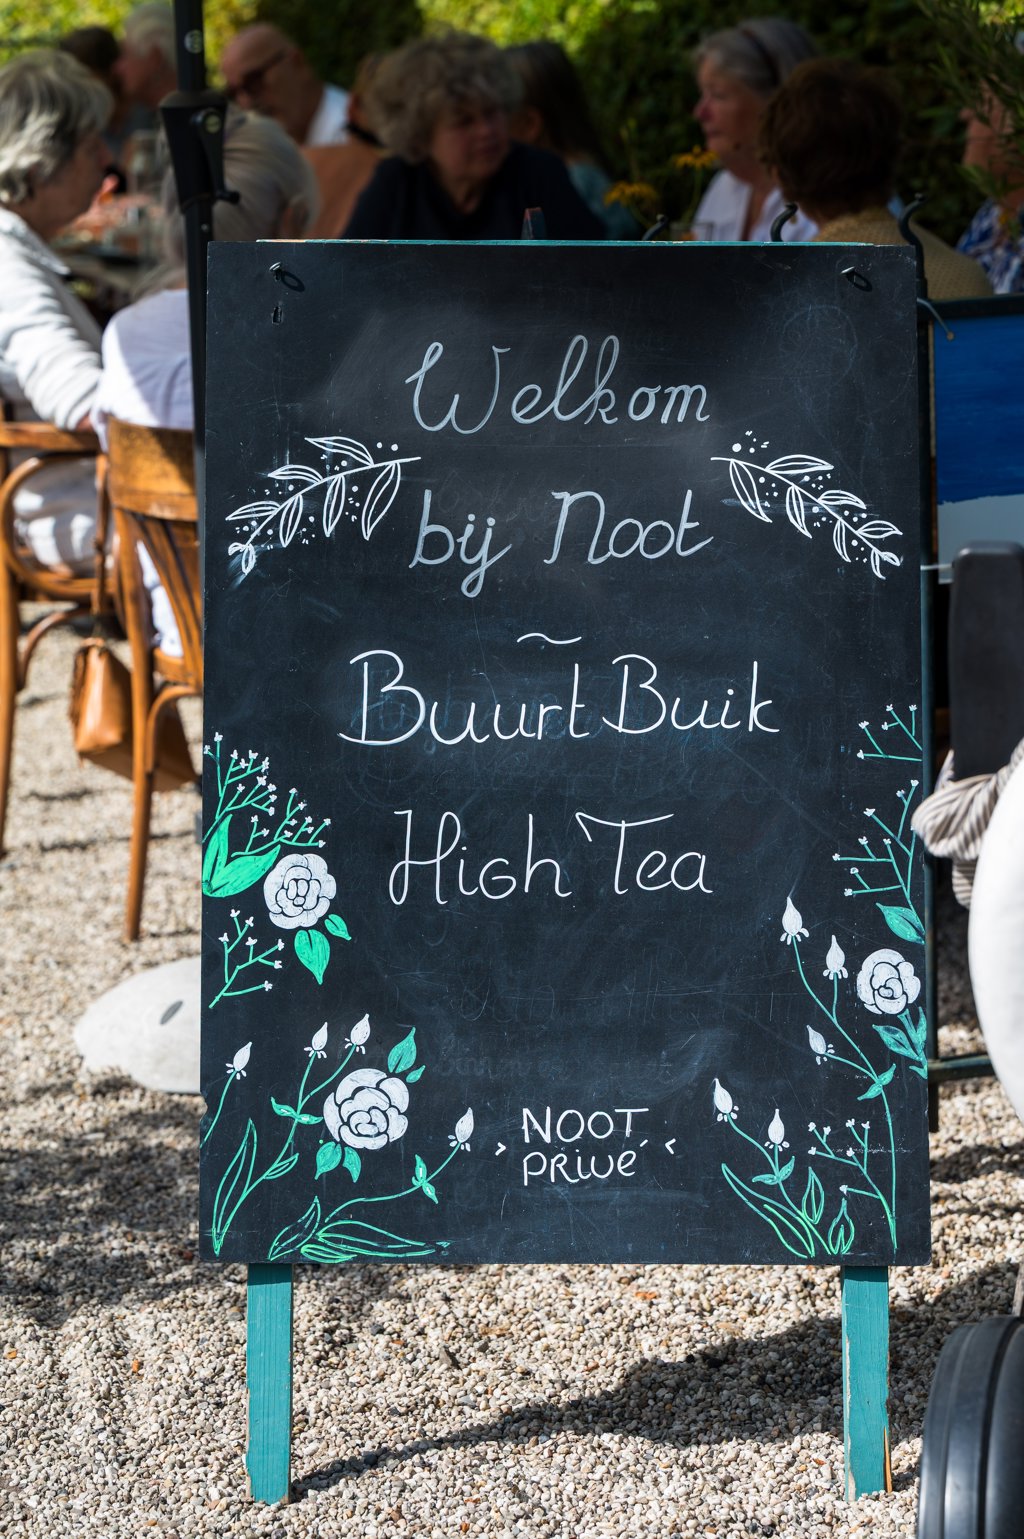 Welkom
bij Noot
~
Buurt Buik
High Tea
NOOT
> PRIVÉ <